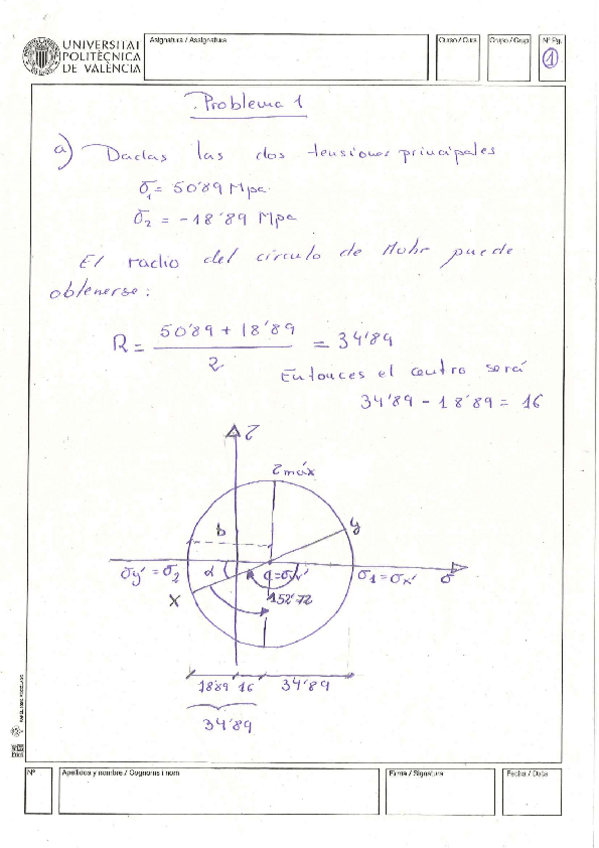 UNIVERSITAT
POLITÈCNICA
DE VALÈNCIA
Asignatura / Assignatura
Curso / Curs
Grupo / Grup
Nº Pg.
1
Problema 1
a) Dadas las dos tensiones principales
σ1 = 50'89 Mpa
σ2 = -18'89 Mpa
El radio del círculo de Mohr puede
obtenerse:
R = (50'89 + 18'89) / 2 = 34'89
Entonces el centro será
34'89 - 18'89 = 16
τ
τmáx
b
y
σy' = σ2
α
C=σxy'
σ1 = σx'
σ
x
152'72
18'89 16 34'89
34'89
Nº
Apellidos y nombre / Cognoms i nom
Firma / Signatura
Fecha / Data